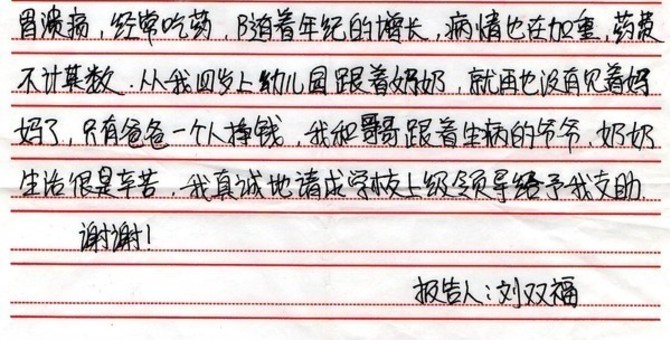 胃溃疡，经常吃药，随着年纪的增长，病情也在加重，药费
不计其数．从我四岁上幼儿园跟着奶奶，就再也没有见着妈
妈了，只有爸爸一个人挣钱，我和哥哥跟着生病的爷爷、奶奶
生活很是辛苦，我真诚地请求学校上级领导给予我支助
谢谢！
报告人：刘双福